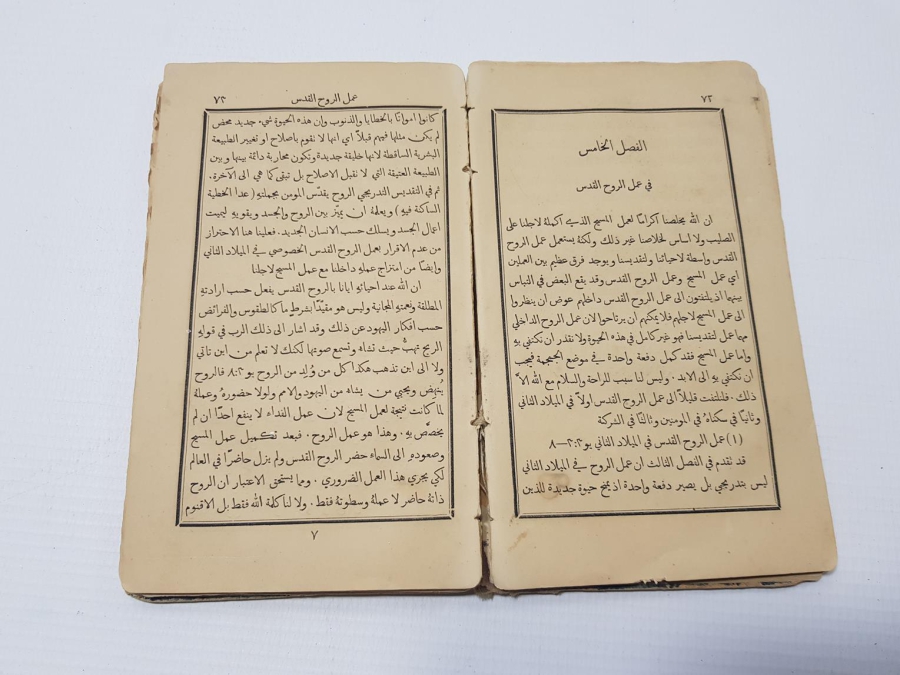 ٧٢
الفصل الخامس
في عمل الروح القدس
ان الله يخلصنا اكرامًا لعمل المسيح الذي اكملهُ لاجلنا على
الصليب ولا اساس لخلاصنا غير ذلك ولكنهُ يستعمل عمل الروح
القدس واسطة لاحيائنا ولتقديسنا ويوجد فرق عظيم بين العملين
اي عمل المسيح وعمل الروح القدس وقد يقع البعض في التباس
بينهما اذ يلتفتون الى عمل الروح القدس داخلهم عوض ان ينظروا
الى عمل المسيح لاجلهم فلا يمكنهم ان يرتاحوا لان عمل الروح الداخلي
مهما عمل لتقديسنا فهو غير كامل في هذه الحيوة ولا نقدر ان نكتفي بهِ
واما عمل المسيح فقد كمل دفعة واحدة في موضع الجمجمة فيجب
ان نكتفي بهِ الى الابد. وليس لنا سبب للراحة والسلام مع الله الاَّ
ذلك. فلنلتفت قليلاً الى عمل الروح القدس اولاً في الميلاد الثاني
وثانيًا في سكناهُ في المومنين وثالثًا في الشركة
(١) عمل الروح القدس في الميلاد الثاني يو ٣:٣–٨
قد تقدم في الفصل الثالث ان عمل الروح في الميلاد الثاني
ليس بتدريجي بل يصير دفعة واحدة اذ يمنح حيوة جديدة للذين
عمل الروح القدس
٧٣
كانوا امواتًا بالخطايا والذنوب وإن هذه الحيوة شيء جديد محض
لم يكن مثلها فيهم قبلاً اي انها لا تقوم باصلاح او تغيير الطبيعة
البشرية الساقطة لانها خليقة جديدة وتكون محاربة دائمة بينها وبين
الطبيعة العتيقة التي لا تقبل الاصلاح بل تبقى كما هي الى الآخرة.
ثم في التقديس التدريجي الروح يقدّس المومن بجملتهِ (عدا الخطية
الساكنة فيهِ) ويعلمهُ ان يميّز بين الروح والجسد ويقويهِ ليميت
اعمال الجسد ويسلك حسب الانسان الجديد. فعلينا هنا الاحتراز
من عدم الاقرار بعمل الروح القدس الخصوصي في الميلاد الثاني
وايضًا من امتزاج عملهِ داخلنا مع عمل المسيح لاجلنا
ان الله عند احيائهِ ايانا بالروح القدس يفعل حسب ارادتهِ
المطلقة ونعمتهِ المجانية وليس هو مقيّدًا بشرطٍ ما كالطقوس والفرائض
حسب افكار اليهود عن ذلك وقد اشار الى ذلك الرب في قولهِ
الريح تهبُّ حيث تشاء وتسمع صوتها لكنك لا تعلم من اين تاتي
ولا الى اين تذهب هكذا كل من وُلد من الروح يو ٨:٣ فالروح
يُنهض ويحيي من يشاء من اليهود والامم ولولا حضورهُ وعملهُ
لما كانت نتيجة لعمل المسيح لان عمل الفداء لا ينفع احدًا ان لم
يخصَّص بهِ. وهذا هو عمل الروح. فبعد تكميل عمل المسيح
وصعودهِ الى السماء حضر الروح القدس ولم يزل حاضرًا في العالم
لكي يجري هذا العمل الضروري. ومما يستحق الاعتبار ان الروح
ذاتهُ حاضر لا عملهُ وسطوتهُ فقط. ولا لنا كلمة الله فقط بل الاقنوم
٧